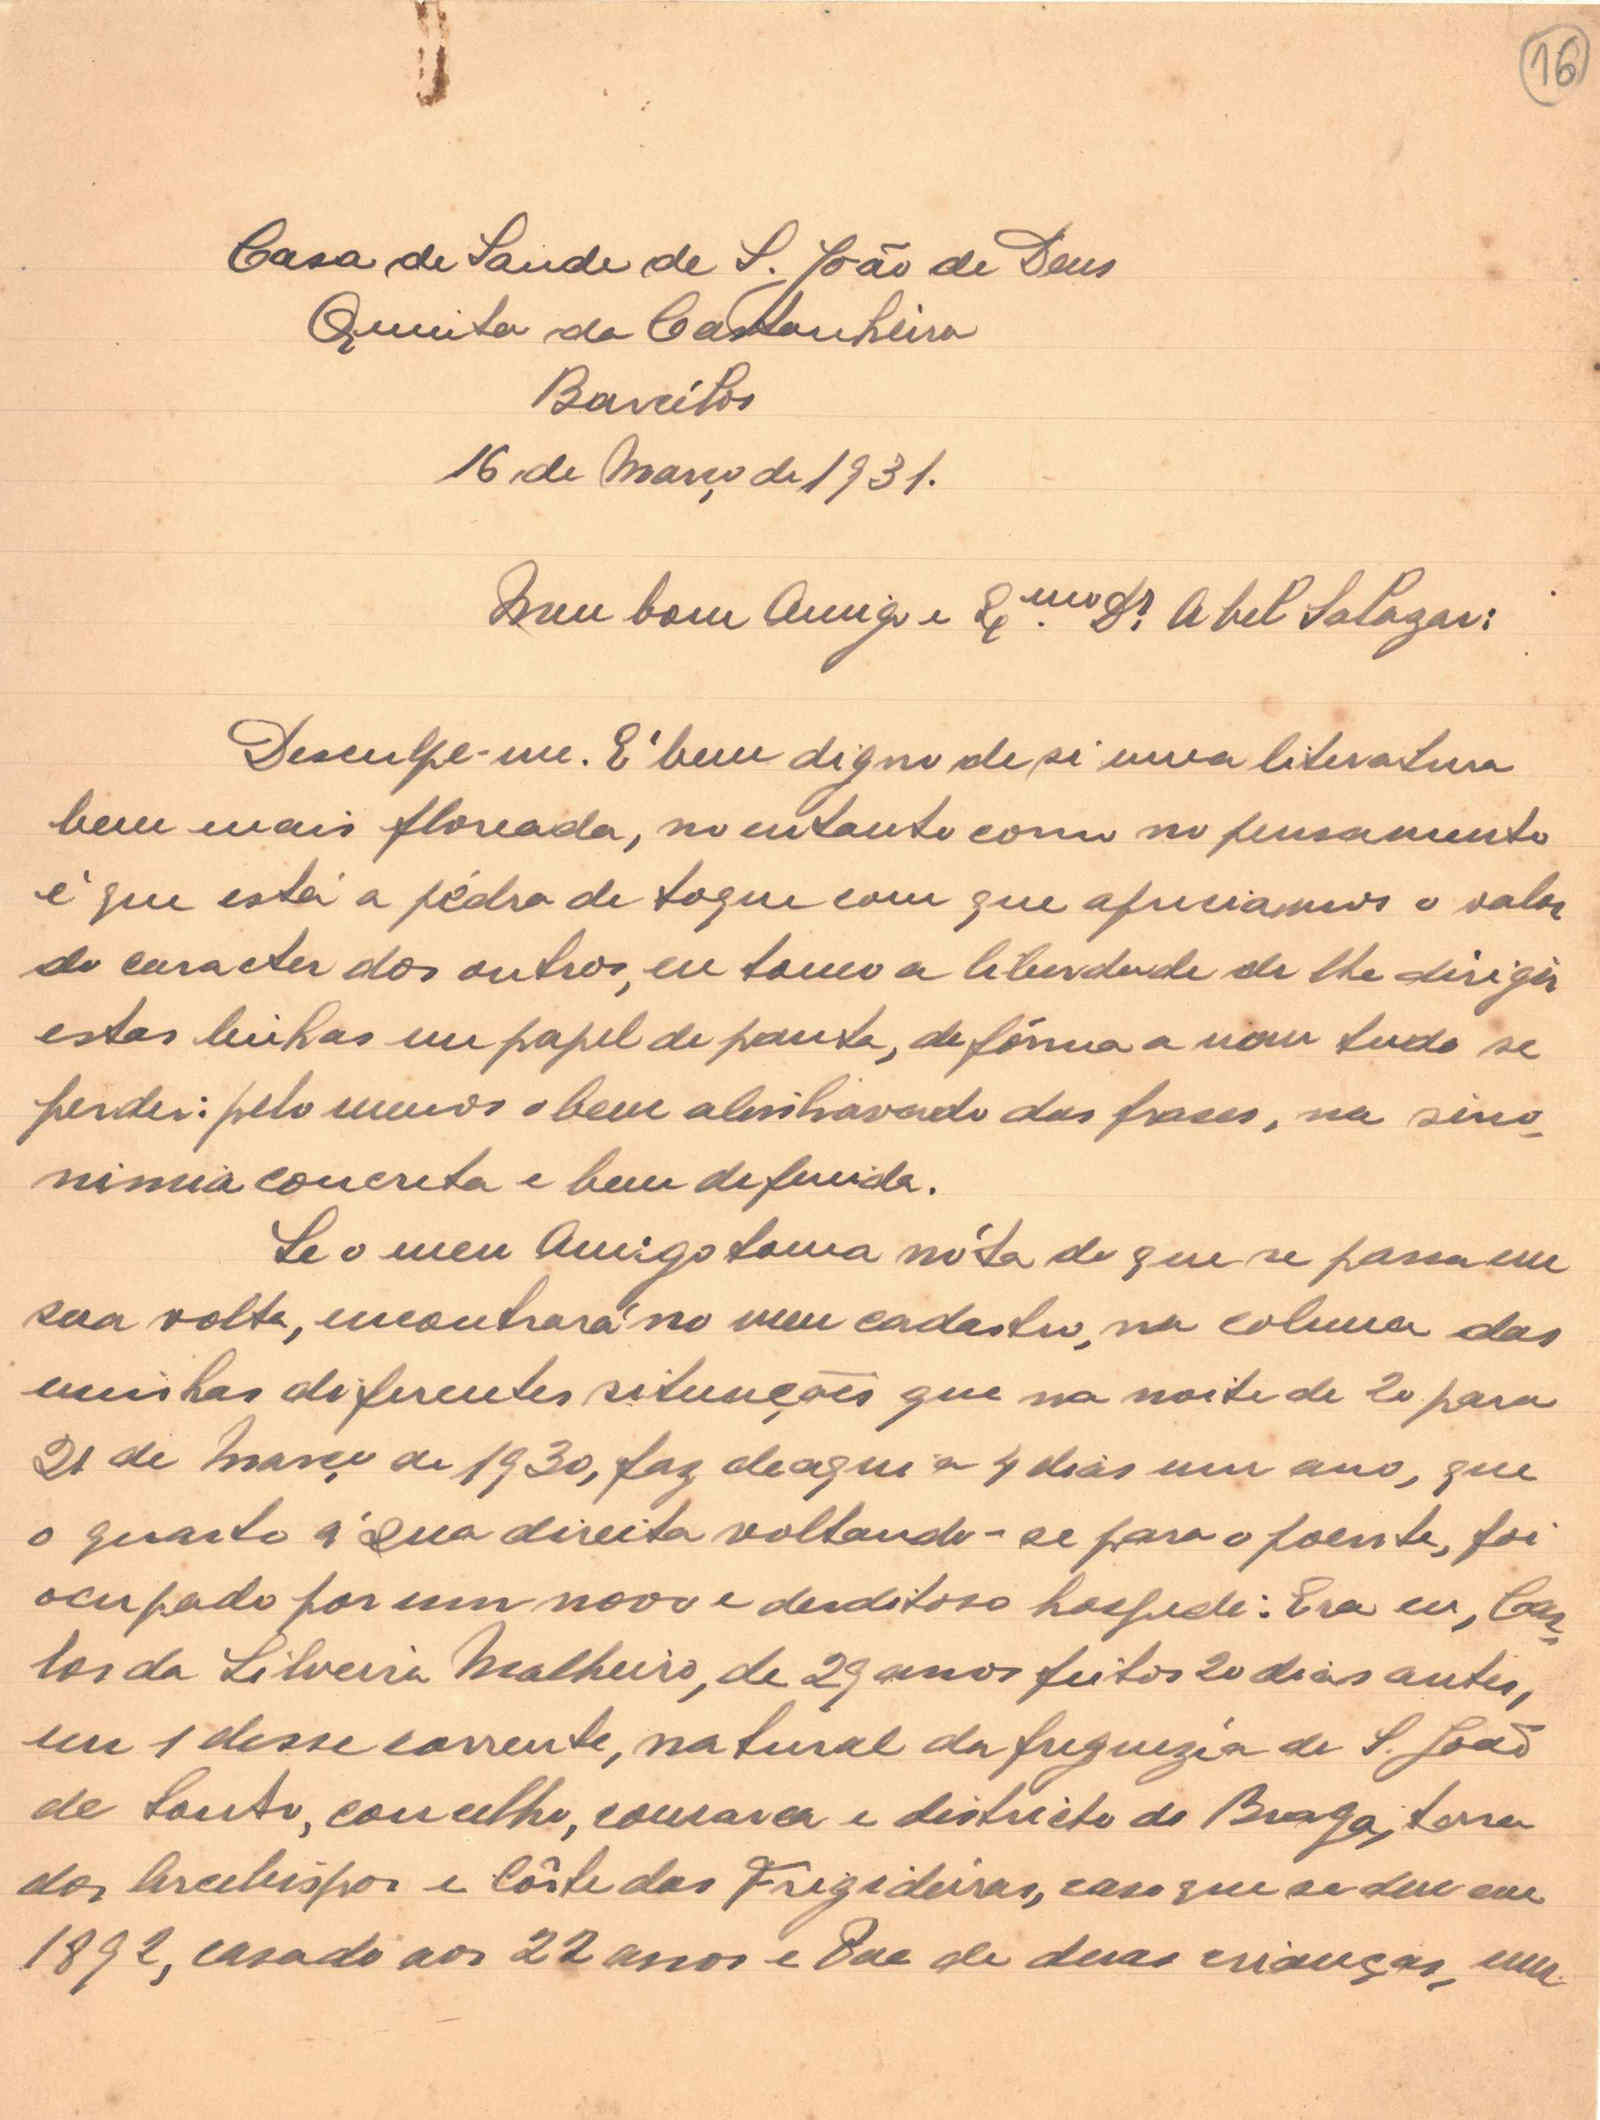 16
Casa de Saude de S. João de Deus
Quinta da Castanheira
Barcélos
16 de Março de 1931.
Meu bom Amigo e Ex.mo Dr. Abel Salazar:
Desculpe-me. E' bem digno de si uma literatura
bem mais floreada, no entanto como no pensamento
é que está a pédra de toque com que apreciamos o valor
do caracter dos outros, eu tomo a liberdade de lhe dirigir
estas linhas em papel de pauta, de fórma a nam tudo se
perder: pelo menos o bem alinhavado das frases, na sino-
nimia concreta e bem definida.
Se o meu Amigo toma nóta do que se passa em
sua volta, encontrará no meu cadastro, na coluna das
minhas diferentes situações que na noite de 20 para
21 de Março de 1930, faz daqui a 4 dias um ano, que
o quarto á sua direita voltando-se para o poente, foi
ocupado por um novo e desditoso hospede: Era eu, Car-
los da Silveira Malheiro, de 29 anos feitos 20 dias antes,
em 1 desse corrente, natural da freguezia de S. João
de Souto, concelho, comarca e districto de Braga, terra
dos Arcebispos e Côrte das Frigideiras, caso que se deu em
1892, casado aos 22 anos e Pae de duas crianças, um